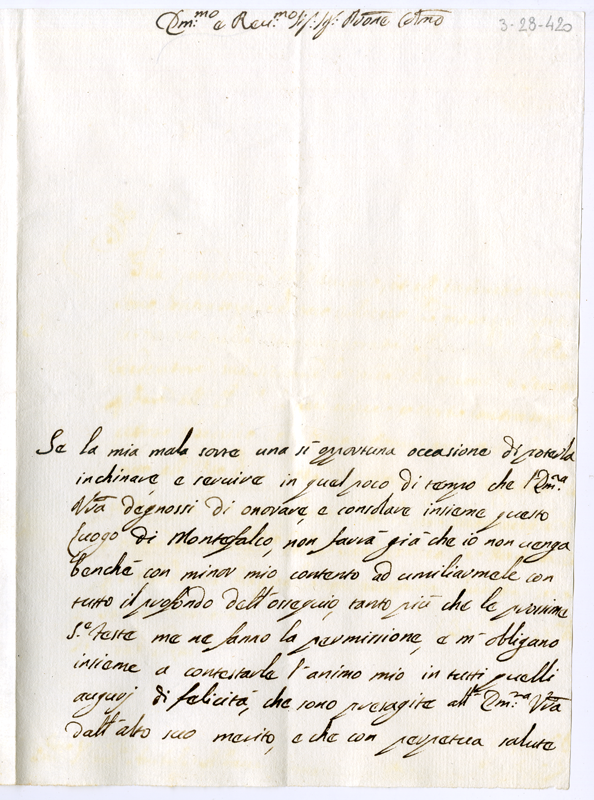 Em.mo e Rev.mo Sig. Sig. Prone Colmo
3-28-420
Se la mia mala sorte una sì opportuna occasione di poterla
inchinare, e servire in quel poco di tempo che l'Em.za
Vra degnossi di onorare, e consolare insieme questo
Luogo di Montefalco, non farrà già che io non venga
benchè con minor mio contento ad umiliarmele con
tutto il profondo dell'ossequio, tanto più che le prossime
S.e Feste me ne fanno la permissione, e m'obligano
insieme a contestarle l'animo mio in tutti quelli
augurj di felicità, che sono presagite all'Em.za Vra
dall'alto suo merito, e che con perpetua salute